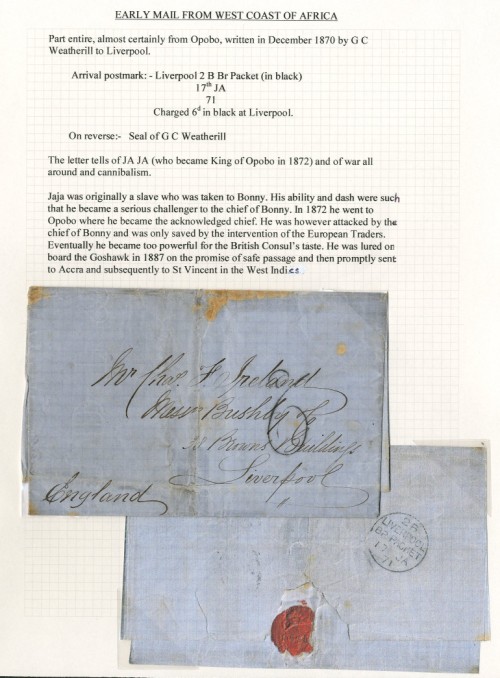 EARLY MAIL FROM WEST COAST OF AFRICA
Part entire, almost certainly from Opobo, written in December 1870 by G C
Weatherill to Liverpool.
Arrival postmark: - Liverpool 2 B Br Packet (in black)
17th JA
71
Charged 6d in black at Liverpool.
On reverse:- Seal of G C Weatherill
The letter tells of JA JA (who became King of Opobo in 1872) and of war all
around and cannibalism.
Jaja was originally a slave who was taken to Bonny. His ability and dash were such
that he became a serious challenger to the chief of Bonny. In 1872 he went to
Opobo where he became the acknowledged chief. He was however attacked by the
chief of Bonny and was only saved by the intervention of the European Traders.
Eventually he became too powerful for the British Consul's taste. He was lured on
board the Goshawk in 1887 on the promise of safe passage and then promptly sent
to Accra and subsequently to St Vincent in the West Indies
Mr Chas. F Ireland
Messrs Bushby Co
Browns Buildings
Liverpool
England
LIVERPOOL
BR PACKET
17 JA
71